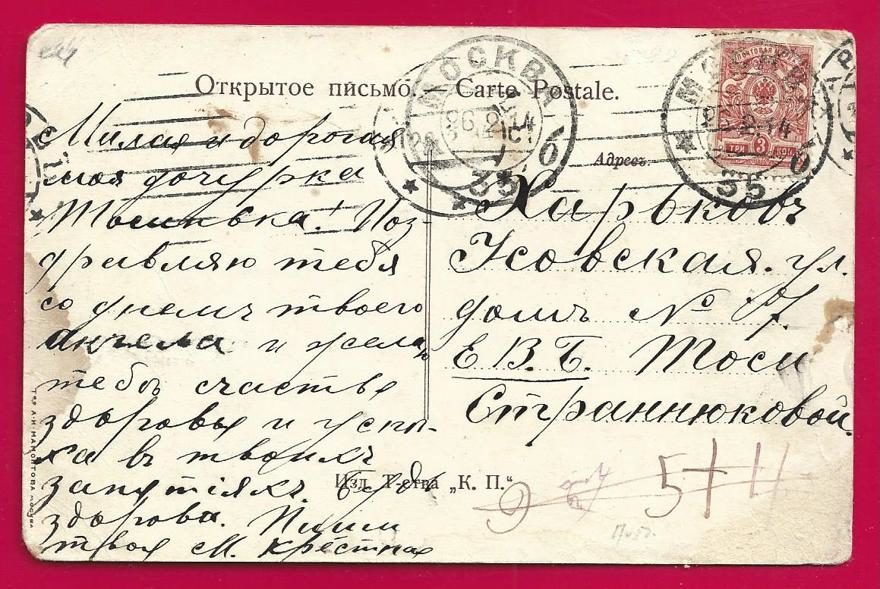 Открытое письмо. — Carte Postale.
МОСКВА
26.2.14
35
МОСКВА
26.2.14
35
ТРИ 3 КОП
Адресъ
Милая и дорогая
моя дочурка
Тосинька! Поз-
дравляю тебя
со днемъ твоего
ангела и желаю
тебѣ счастья
здоровья и успѣ-
ха въ твоихъ
занятіяхъ. Будь
здорова. Пиши
твоя М. Крестная
Харьковъ
Усовская. ул.
домъ № 7
Е. В. Б. Тоси
Странюковой.
Изд. Т-ства „К. П.“
Т-во А. И. МАМОНТОВА МОСКВА
9
5++